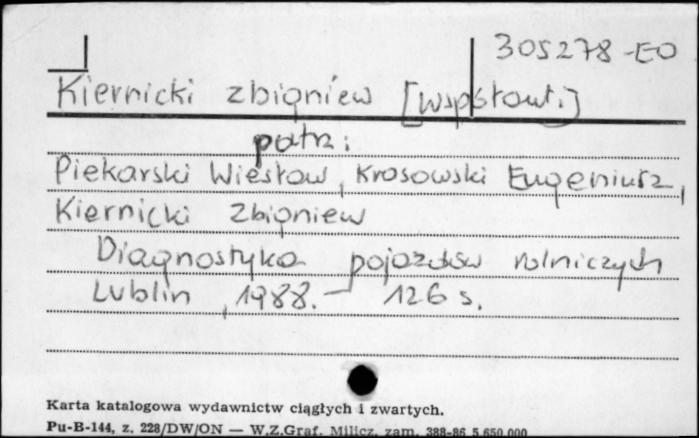 305278-EO
Kiernicki Zbigniew [współaut.]
patrz:
Piekarski Wiesław, Krasowski Eugeniusz,
Kiernicki Zbigniew
Diagnostyka pojazdów rolniczych
Lublin, 1988. – 126 s.
Karta katalogowa wydawnictw ciągłych i zwartych.
Pu-B-144, z. 228/DW/ON — W.Z.Graf. Milicz, zam. 388-86 5 650 000